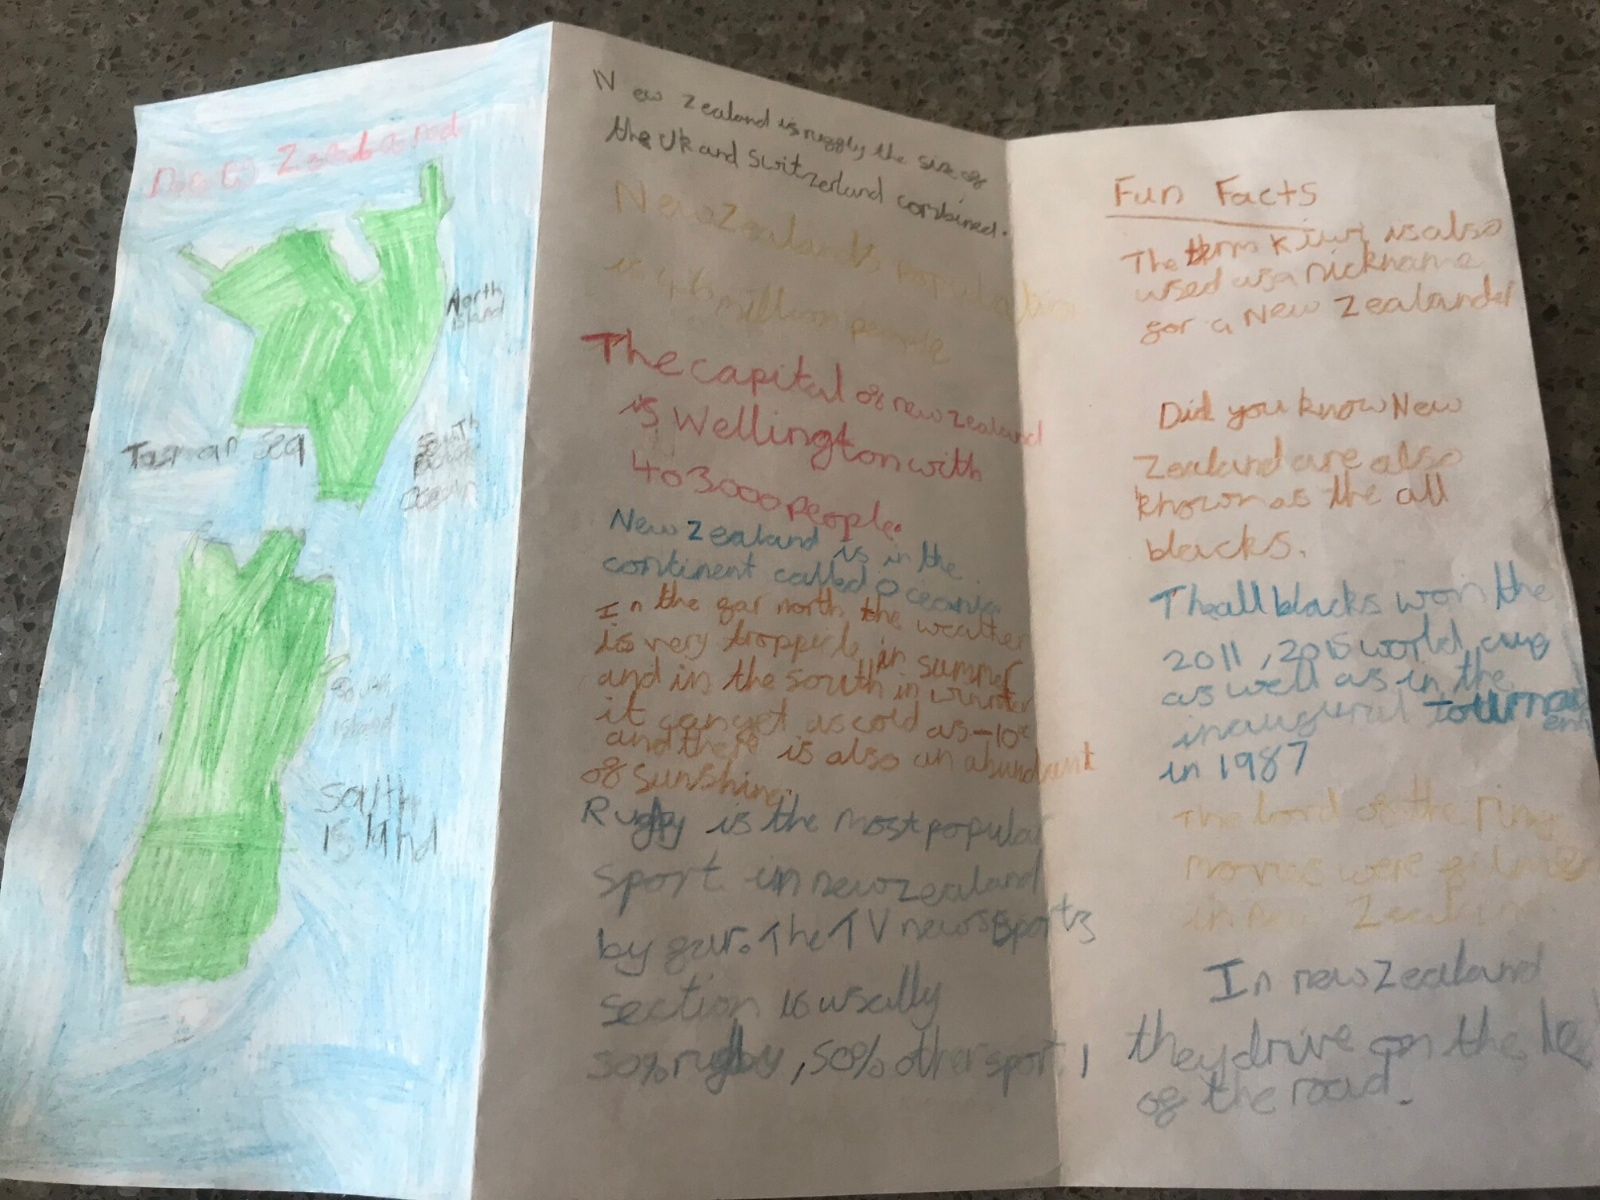 New Zealand
North
Island
Tasman Sea
South
Ocean
South
Island
South
Island
New Zealand is ruggly the size of
the UK and Switzerland combined.
New Zealand's population
is million people
The capital of new zealand
is Wellington with
403000 people.
New Zealand is in the
continent called Oceania
In the far north the weather
is very troppicle in summer
and in the south in winter
it can get as cold as -10c
and there is also an abundant
of sunshine.
Rugby is the most popular
sport in new zealand
by far. The TV news sports
section is usally
50% rugby, 50% other sport!
Fun Facts
The term kiwi is also
used as a nickname
for a New Zealander
Did you know New
Zealand are also
known as the all
blacks.
The all blacks won the
2011, 2015 world cup
as well as in the
inaugural tournament
in 1987
The lord of the ring
movies were filmed
in new Zealand
In new Zealand
they drive on the le
of the road.